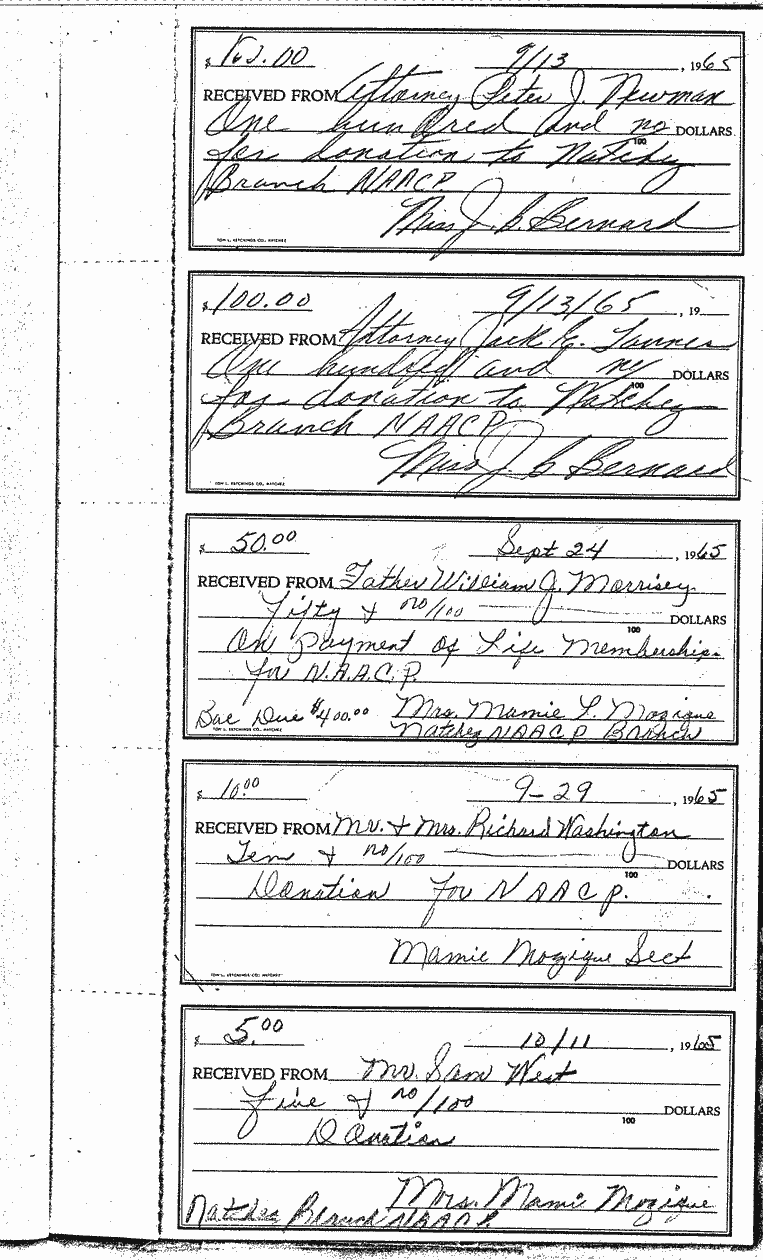 $ 100.00 9/13, 1965
RECEIVED FROM Attorney Peter J. Newman
One hundred and no DOLLARS
100
for donation to Natchez
Branch NAACP
Miss J. B. Bernard
TOM L. KETCHINGS CO., NATCHEZ
$ 100.00 9/13/65, 19
RECEIVED FROM Attorney Jack E. Tanner
One hundred and no DOLLARS
100
for donation to Natchez
Branch NAACP
Miss J. B. Bernard
TOM L. KETCHINGS CO., NATCHEZ
$ 50.00 Sept 24, 1965
RECEIVED FROM Father William J. Morrisey
Fifty & no/100 DOLLARS
100
On Payment of Life Membership
for N.A.A.C.P.
Bal Due $400.00 Mrs. Mamie L. Mozique
TOM L. KETCHINGS CO., NATCHEZ Natchez NAACP Branch
$ 10.00 9-29, 1965
RECEIVED FROM Mr. & Mrs. Richard Washington
Ten & no/100 DOLLARS
100
Donation for NAACP.
Mamie Mozique Sect
TOM L. KETCHINGS CO., NATCHEZ
$ 5.00 10/11, 1965
RECEIVED FROM Mr. Sam West
Five & no/100 DOLLARS
100
Donation
Mrs. Mamie Mozique
Natchez Branch NAACP.